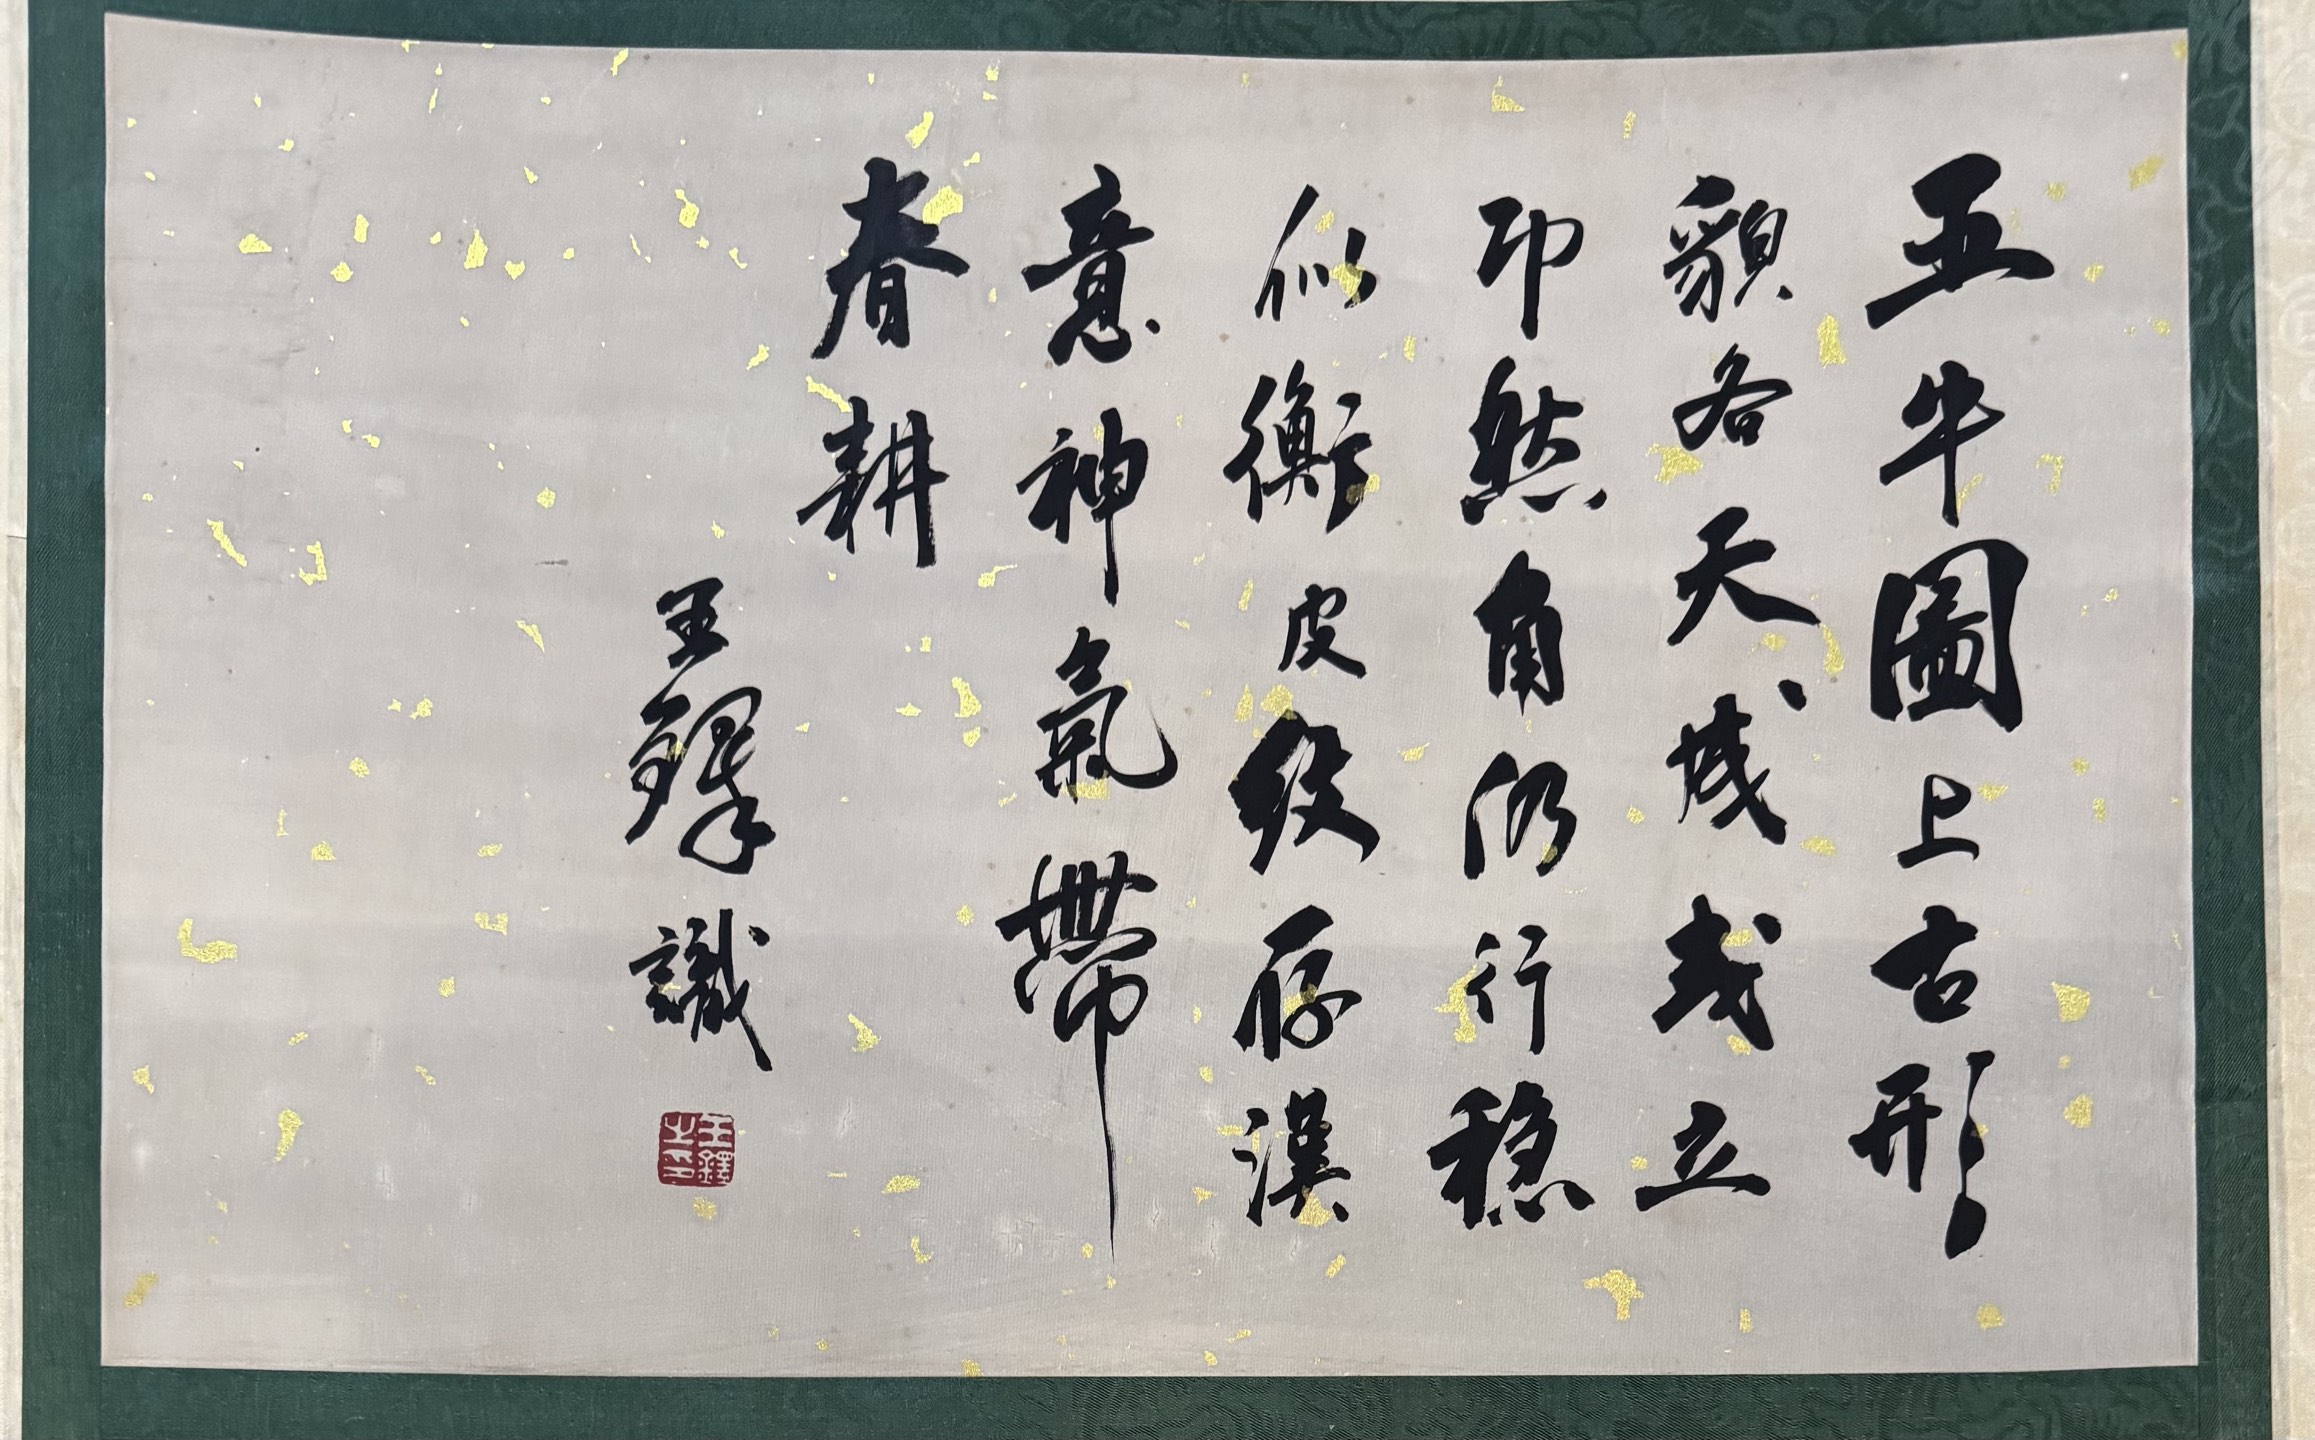 五牛圖上古形
貌各天成或立
卬然角仍行穩
似衡皮紋存漢
意神氣帶
春耕
王鐸識
王鐸之印